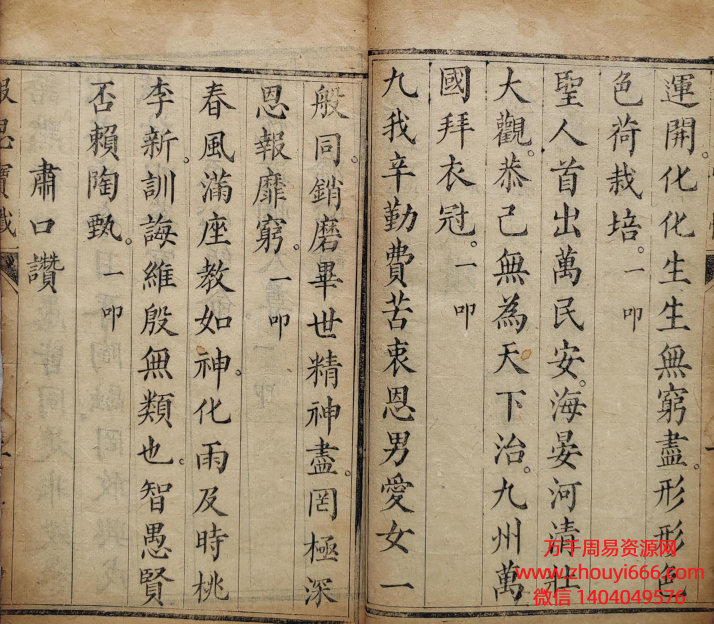 運開。化化生生無窮盡。形形色
色荷栽培。一叩
聖人首出萬民安。海晏河清壯
大觀。恭己無為天下治。九州萬
國拜衣冠。一叩
九我辛勤費苦衷恩男愛女一
般同。銷磨畢世精神盡。罔極深
恩報靡窮。一叩
春風滿座教如神。化雨及時桃
李新。訓誨維殷無類也。智愚賢
否賴陶甄。一叩
肅口讚
報恩寶懺
万千周易资源网
www.zhouyi666.com
微信 1404049576